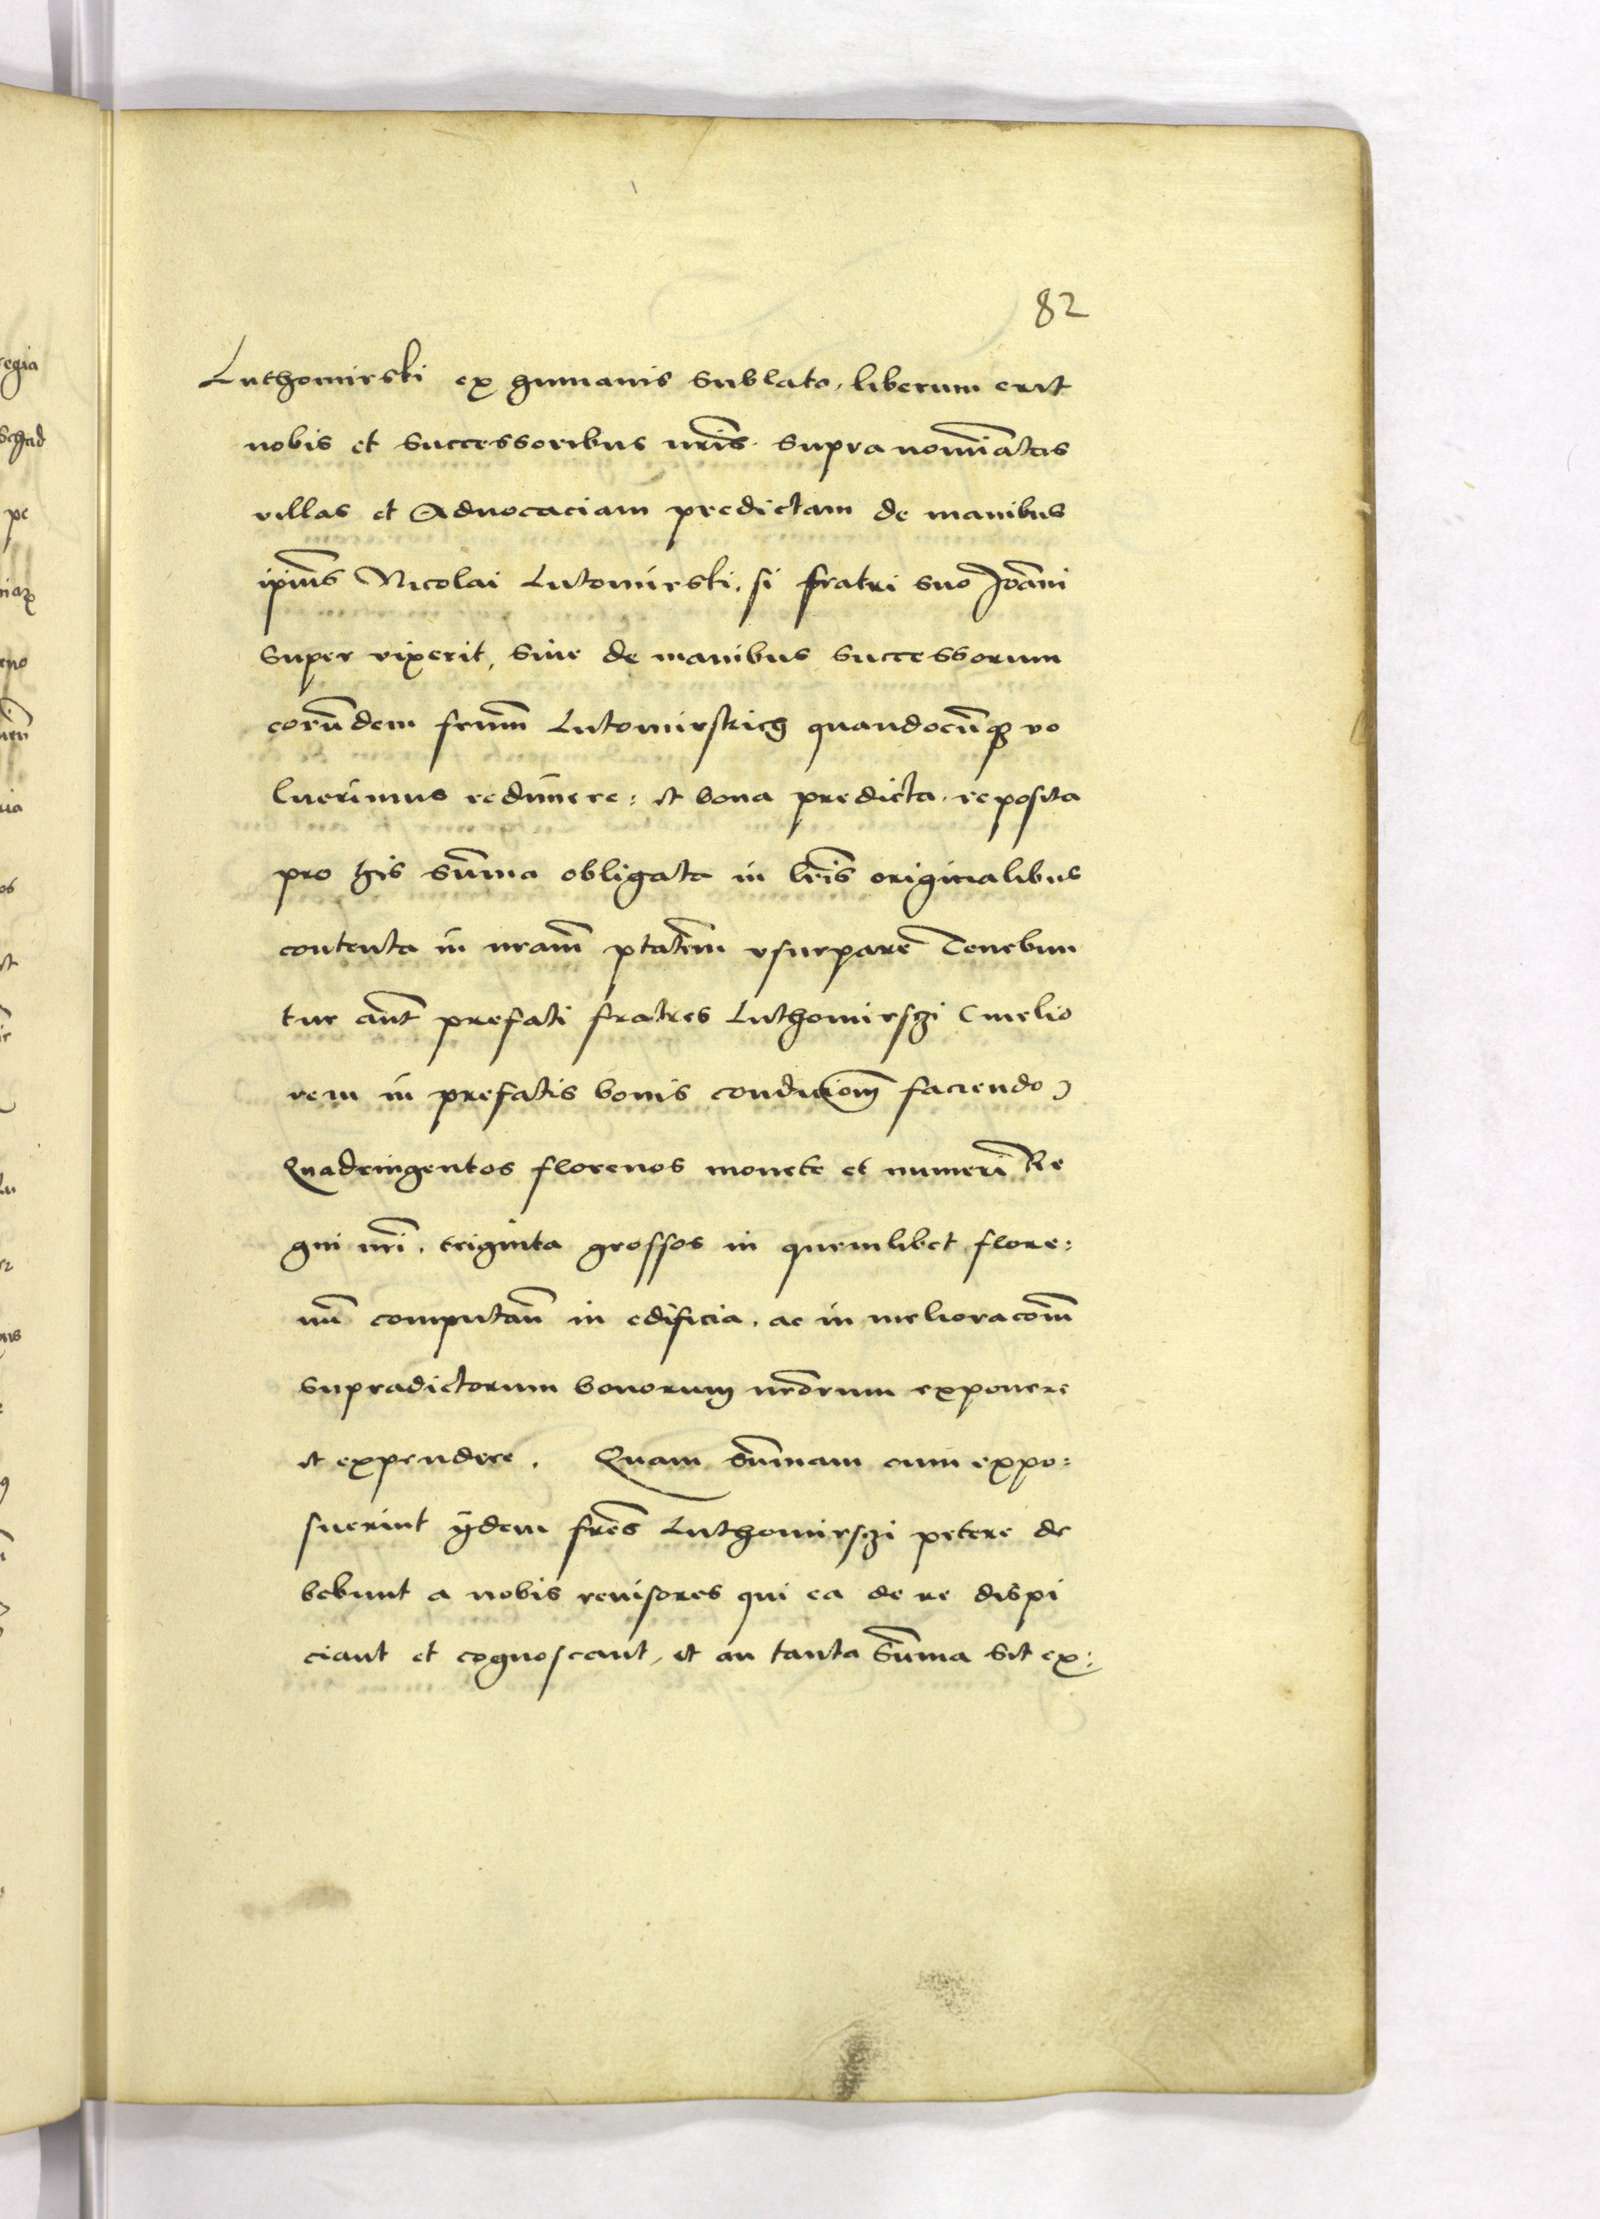 82
Luthomirski ex humanis sublato, liberum erit
nobis et successoribus nris supra nominatas
villas et Aduocaciam predictam de manibus
ipius Nicolai Lutomirski, si fratri suo Joanni
super vixerit, siue de manibus successorum
eorundem frum Lutomirskich quandocunq vo
luerimus redimere: et bona predicta reposita
pro his summa obligata in lris originalibus
contenta in nram ptatem vsurpare Tenebun
tur aut prefati fratres Luthomirszi (melio
rem in prefatis bonis condiciom faciendo)
Quadringentos florenos monete et numeri Re
gni nri, triginta grossos in quemlibet flore:
nu computan in edificia, ac in melioracom
supradictorum bonorum nrorum exponere
et expendere. Quam summam cum expo:
suerint ydem fres Luthomirszi petere de
bebunt a nobis reuisores qui ea de re dispi
ciant et cognoscant, et an tanta summa sit ex: